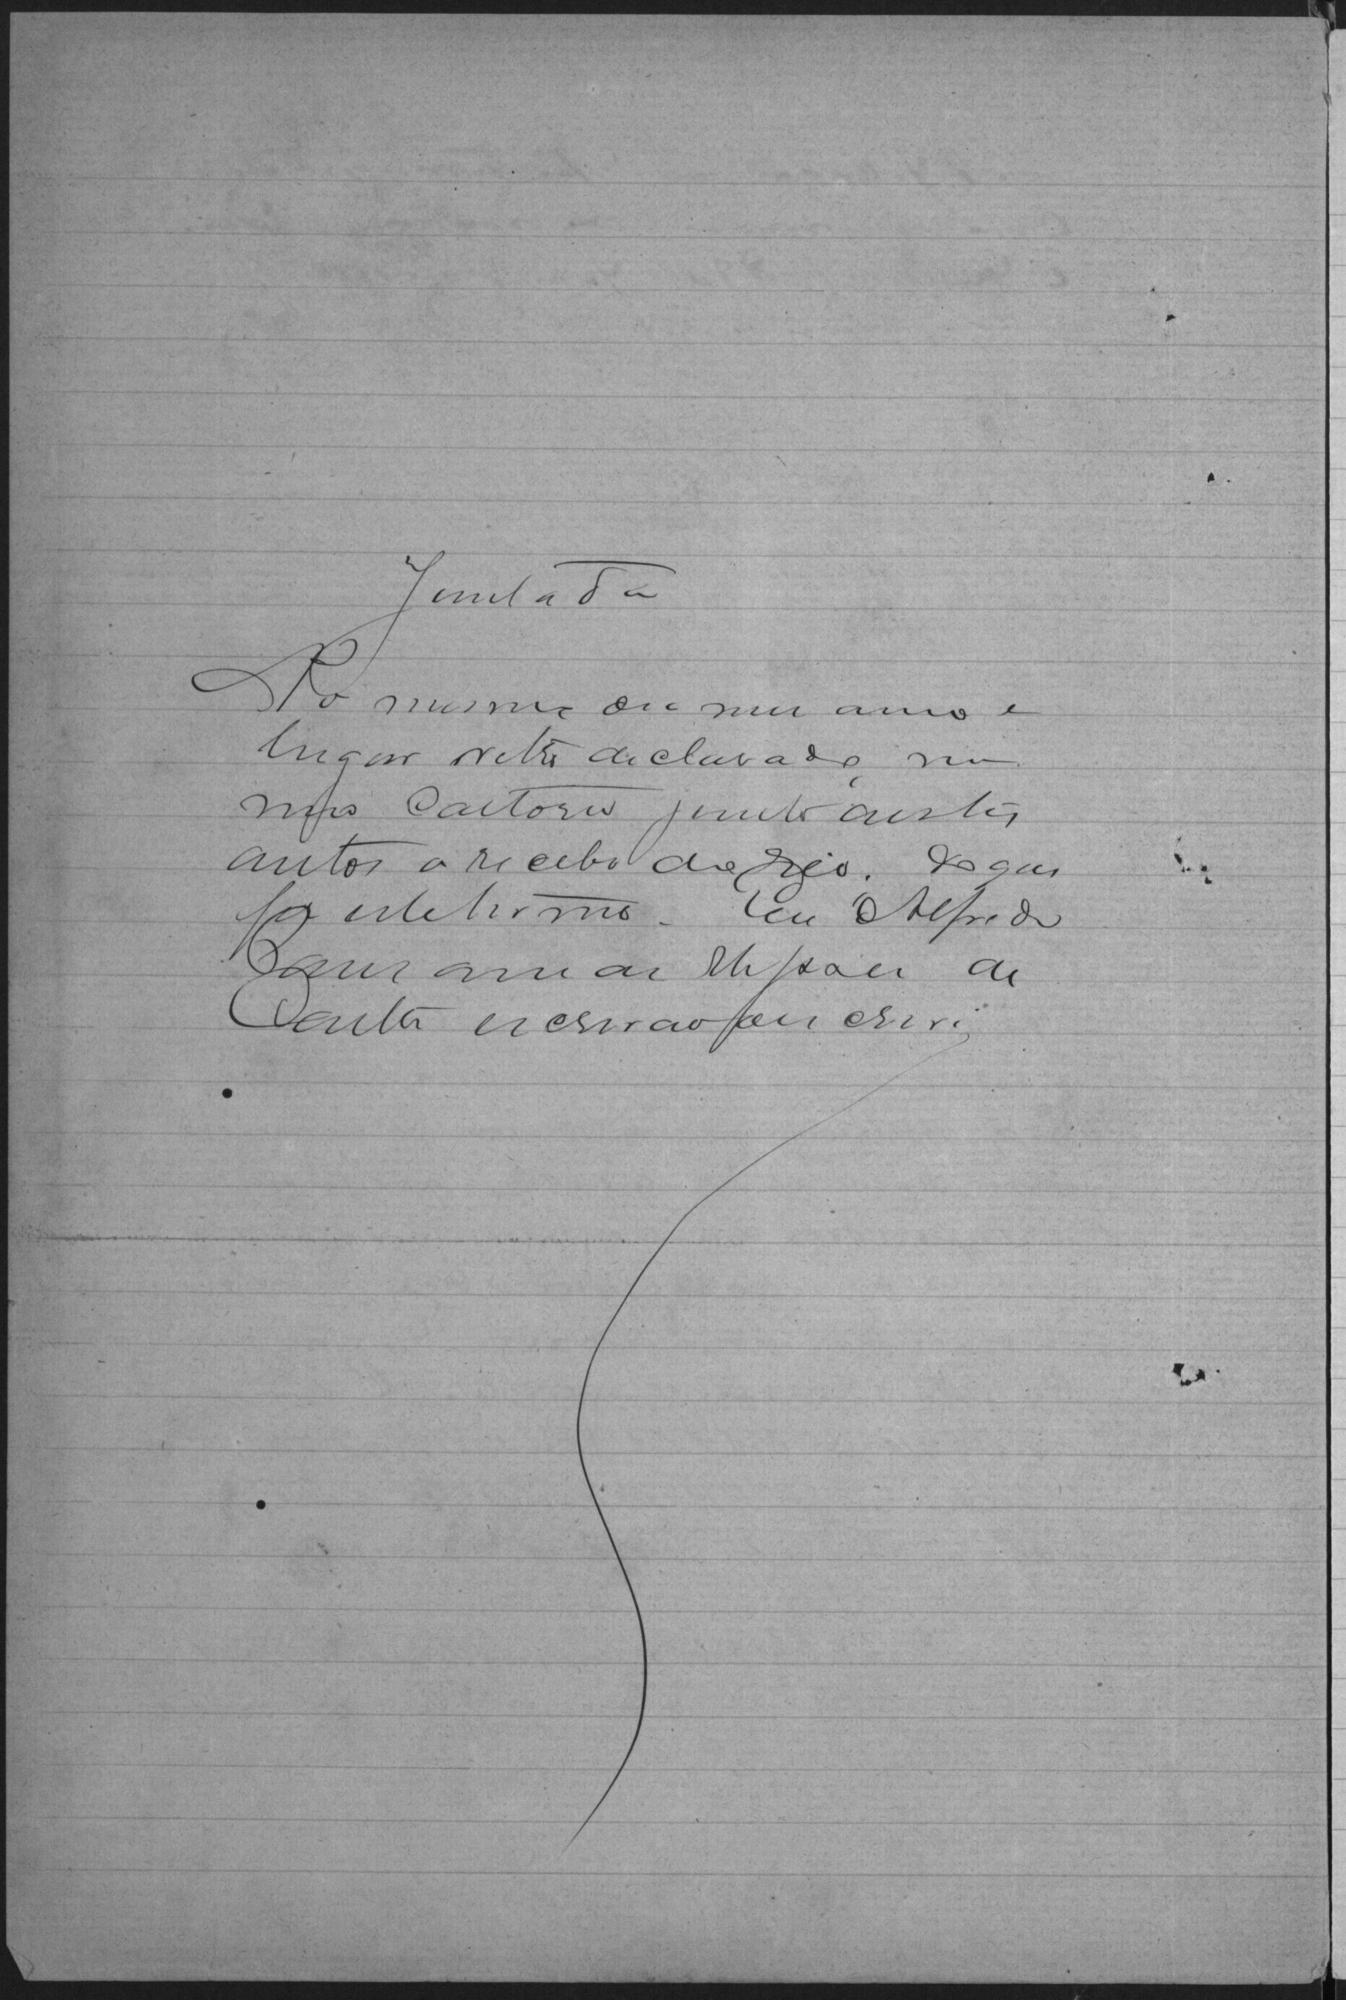 Juntada
Ao mesmo dia mez anno e
lugar retro declarado, em
meo Cartorio junto aestes
autos o recibo do que
fiz este termo. Eu Alfredo
de
Costa escrivão que escrevi